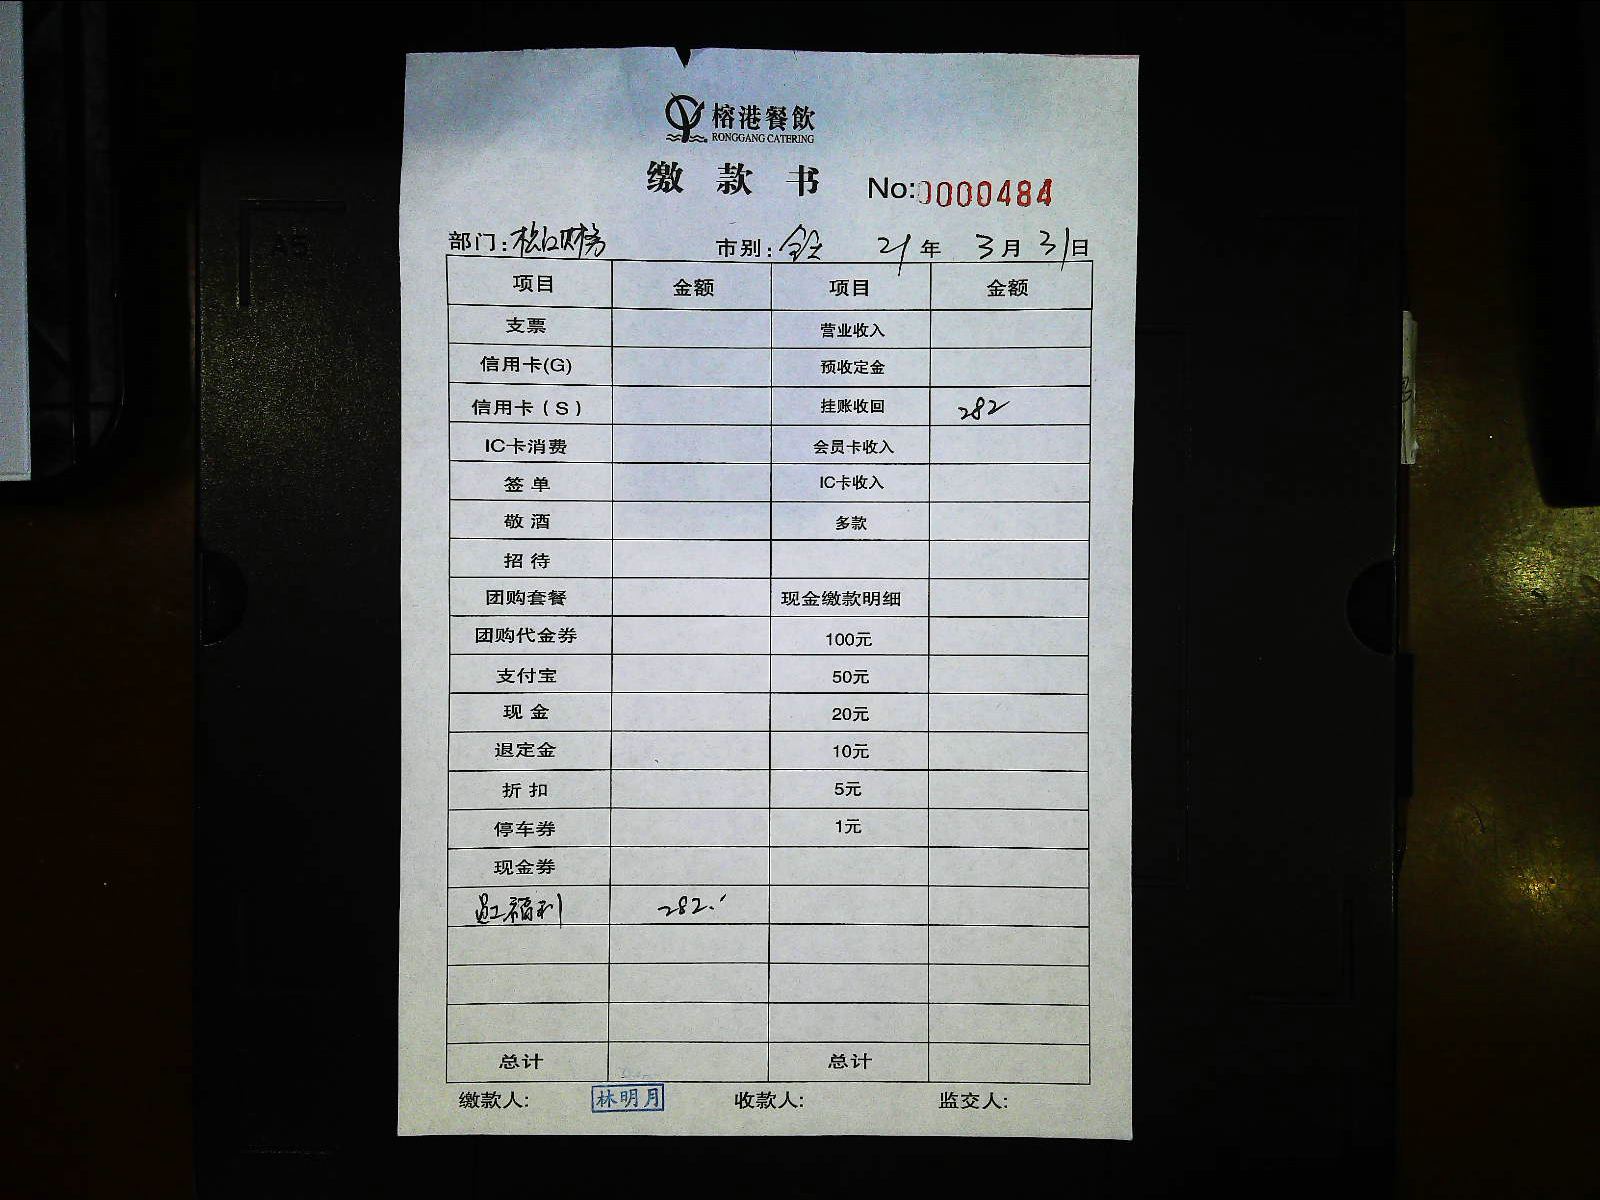 榕港餐飲
RONGGANG CATERING
缴款书 No:0000484
部门:松江财务 市别:全天 21年3月31日
项目 金额 项目 金额
支票 营业收入
信用卡(G) 预收定金
信用卡(S) 挂账收回 282
IC卡消费 会员卡收入
签单 IC卡收入
敬酒 多款
招待
团购套餐 现金缴款明细
团购代金券 100元
支付宝 50元
现金 20元
退定金 10元
折扣 5元
停车券 1元
现金券
员工福利 282.
总计 总计
缴款人: 林明月 收款人: 监交人:
A5